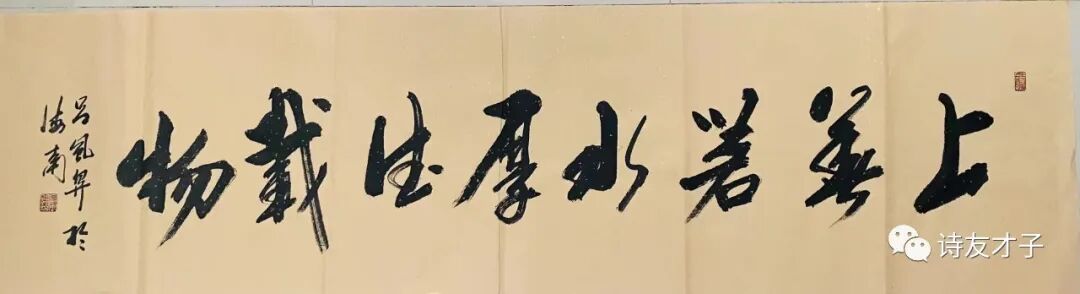 上善若水厚德载物
吕凤弃於
海南
诗友才子